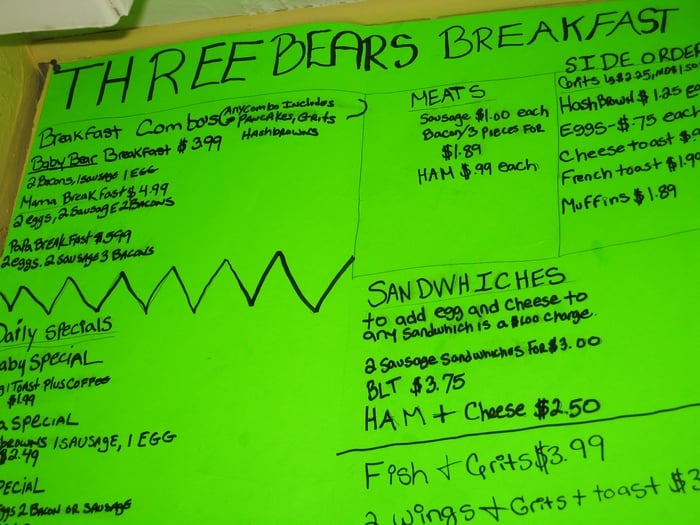 THREE BEARS BREAKFAST
Breakfast Combos (Any Combo Includes
PANCAKES, Grits
Hashbrowns
Baby Bear Breakfast $3.99
2 Bacons, 1 sausage 1 EGG
Mama Breakfast $4.99
2 eggs, 2 Sausage 2 Bacons
PaPa BREAKFast $5.99
2 eggs. 2 Sausage 3 BACONS
MEATS
Sausage $1.00 each
Bacon/3 PIECES FOR
$1.89
HAM $.99 each
SIDE ORDER
Grits
Hash Brown $1.25
Eggs-$.75 each
Cheese toast
French toast $1.99
Muffins $1.89
Daily Specials
aby SPECIAL
1 Toast Plus Coffee
$1.99
a SPECIAL
browns 1 SAUSAGE, 1 EGG
$2.49
PECIAL
ggs 2 BACON OR SAUSAGE
SANDWHICHES
to add egg and cheese to
any sandwhich is a $1.00 charge.
2 Sausage Sandwhiches FOR $3.00
BLT $3.75
HAM + Cheese $2.50
Fish + Grits $3.99
2 wings + Grits + toast $3